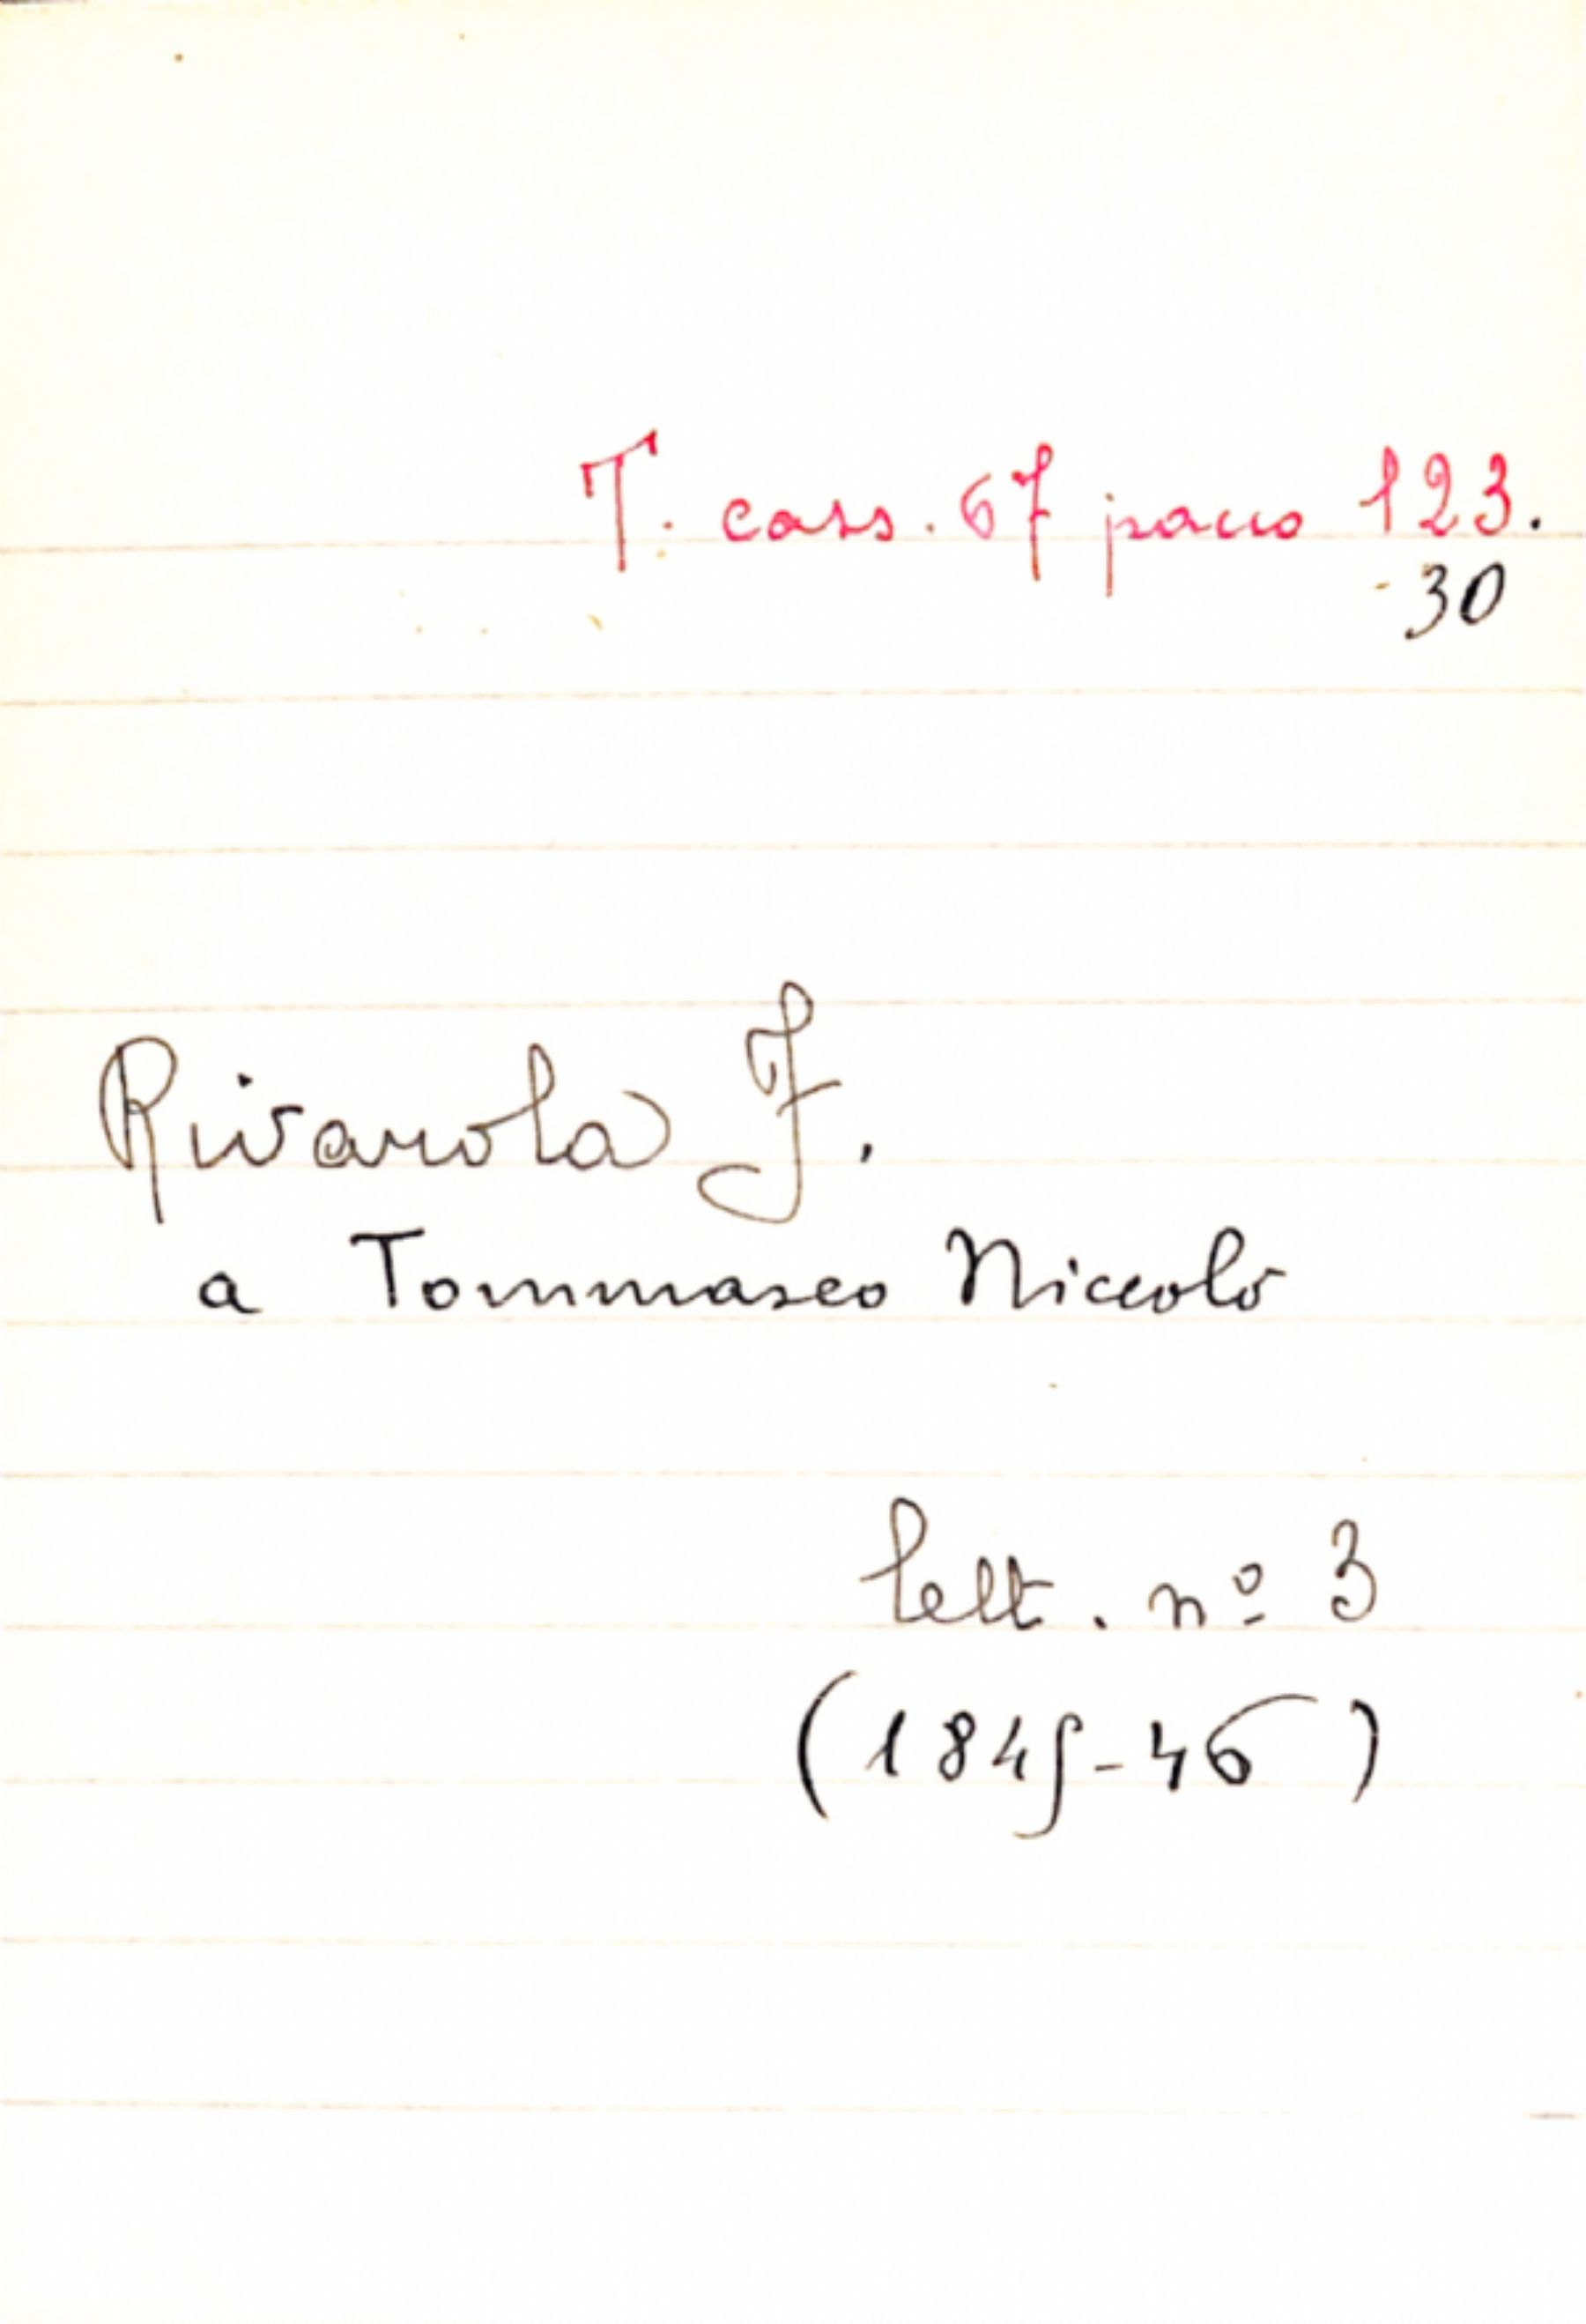 T. cass. 67 pacco 123.
30
Rivarola F.
a Tommaseo Niccolò
lett. nº 3
(1845-46)